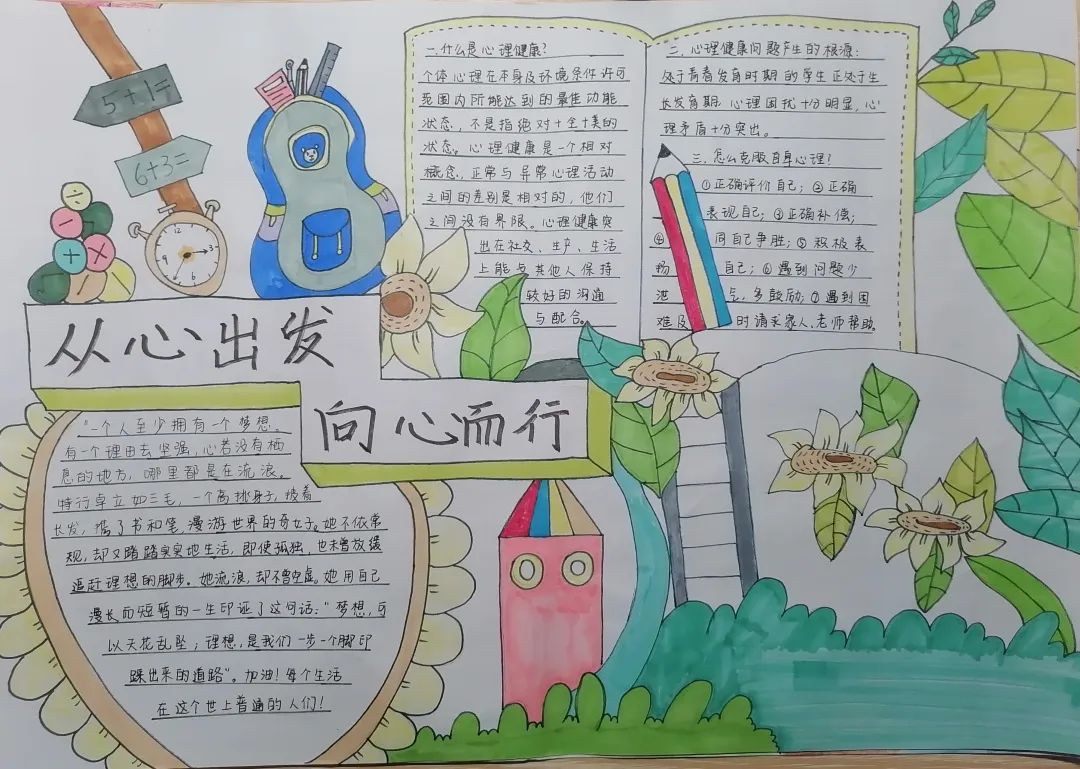 5+1=
6+3=
12
3
从心出发
向心而行
二.什么是心理健康?
个体心理在本身及环境条件许可
范围内所能达到的最佳功能
状态,不是指绝对十全十美的
状态。心理健康是一个相对
概念,正常与异常心理活动
之间的差别是相对的,他们
之间没有界限。心理健康突
出在社交、生产、生活
上能与其他人保持
较好的沟通
与配合。
三.心理健康问题产生的根源:
处于青春发育时期的学生正处于生
长发育期.心理困扰十分明显,心
理矛盾十分突出。
三.怎么克服自卑心理?
①正确评价自己;②正确
表现自己;③正确补偿;
④同自己争胜;⑤积极表
扬自己;⑥遇到问题少
泄气,多鼓励;⑦遇到困
难及时请求家人、老师帮助.
"一个人至少拥有一个梦想.
有一个理由去坚强,心若没有栖
息的地方,哪里都是在流浪。
特行卓立如三毛,一个高挑身子,披着
长发,携了书和笔,漫游世界的奇女子。她不依常
规,却又踏踏实实地生活,即使孤独,也未曾放缓
追赶理想的脚步.她流浪,却不曾空虚。她用自己
漫长而短暂的一生印证了这句话:"梦想,可
以天花乱坠;理想,是我们一步一个脚印
踩出来的道路"。加油!每个生活
在这个世上普通的人们!